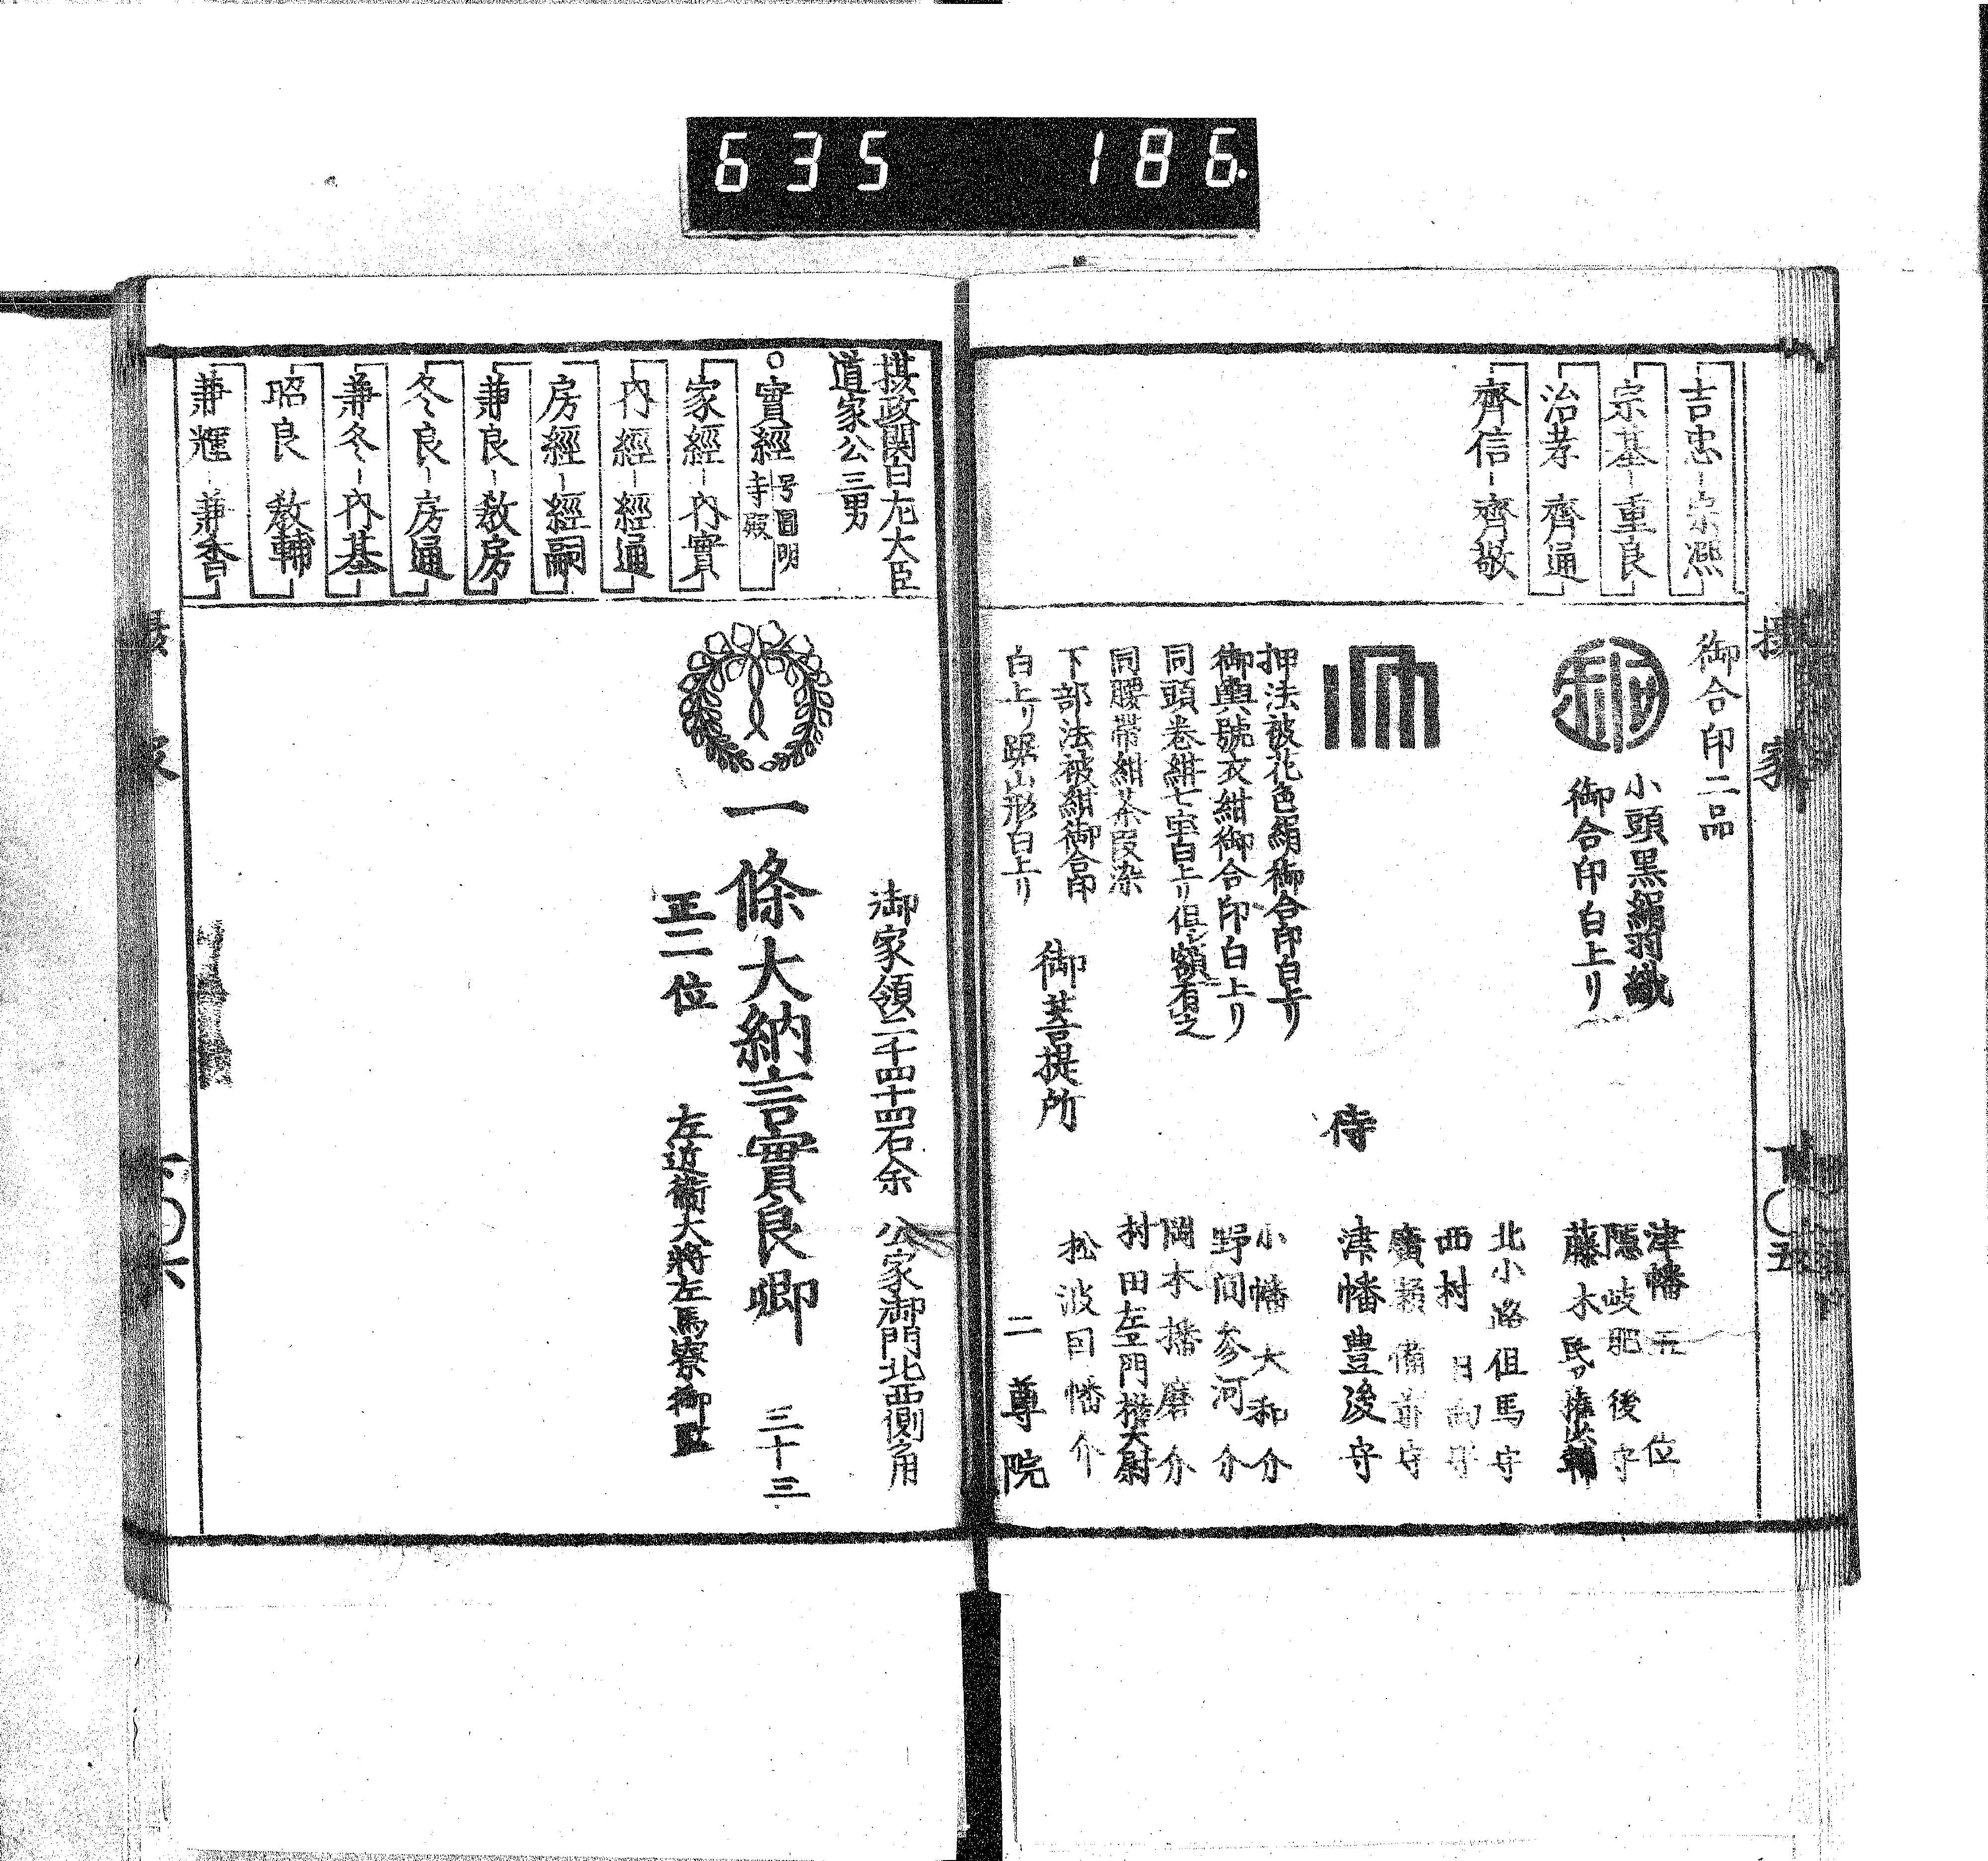 635 186.
摂家
下〇五
吉忠 宗凞
宗基 重良
治孝 齊通
齊信 齊敬
御合印二品
小頭黒絹羽織
御合印白上リ
押法被花色絹御合印白上リ
御輿號衣紺御合印白上リ
同頭巻紺七宝白上リ但シ額有之
同腰帯紺茶段染
下部法被紺御合印
白上リ踞山形白上リ
津幡 五位
隱岐肥後守
藤木民ア権少輔
北小路但馬守
西村日向守
廣瀬備前守
侍
津幡豊後守
小幡大和介
野間参河介
岡木播磨介
村田左エ門権大尉
松波因幡介
御菩提所
二尊院
摂政関白左大臣
道家公三男
實經 号圓明寺殿
家經 内實
内經 經通
房經 經嗣
兼良 教房
冬良 房通
兼冬 内基
昭良 教輔
兼輝 兼香
御家領二千四十四石余 公家御門北西側角
一條大納言實良卿 三十三
正二位 左近衛大將左馬寮御監
家
下〇六